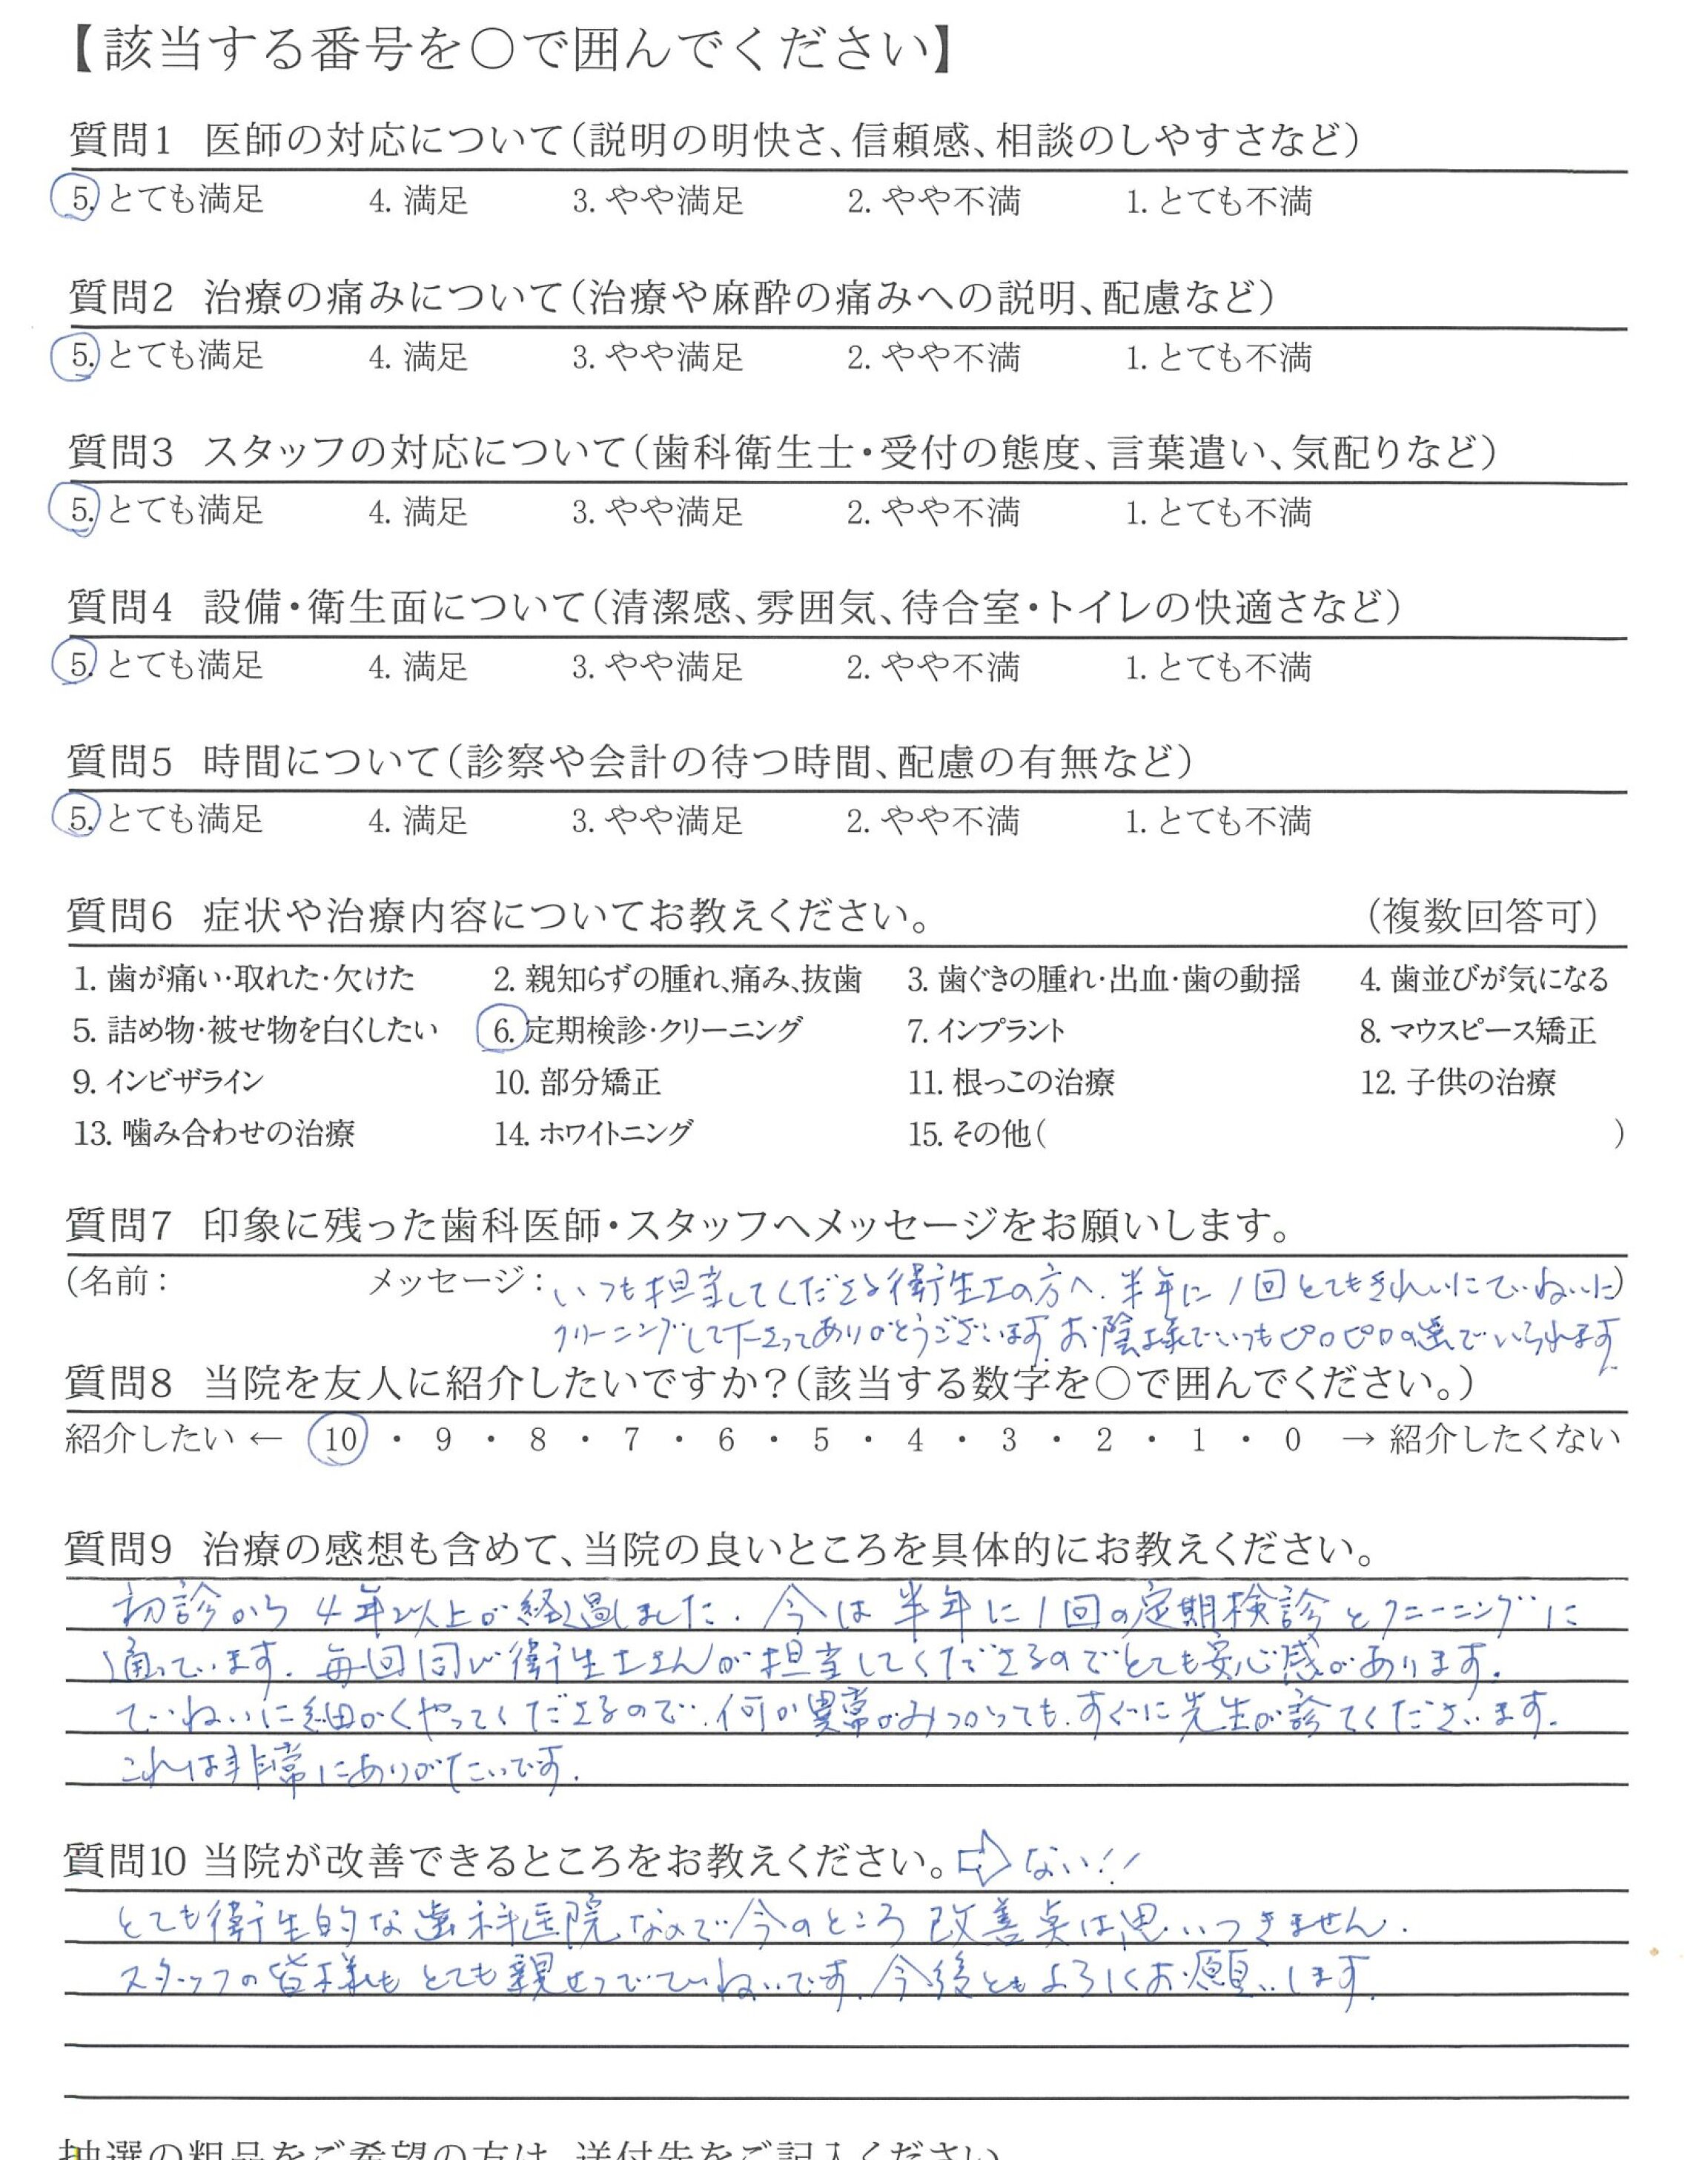 【該当する番号を〇で囲んでください】
質問1 医師の対応について(説明の明快さ、信頼感、相談のしやすさなど)
5. とても満足 4. 満足 3. やや満足 2. やや不満 1. とても不満
質問2 治療の痛みについて(治療や麻酔の痛みへの説明、配慮など)
5. とても満足 4. 満足 3. やや満足 2. やや不満 1. とても不満
質問3 スタッフの対応について(歯科衛生士・受付の態度、言葉遣い、気配りなど)
5. とても満足 4. 満足 3. やや満足 2. やや不満 1. とても不満
質問4 設備・衛生面について(清潔感、雰囲気、待合室・トイレの快適さなど)
5. とても満足 4. 満足 3. やや満足 2. やや不満 1. とても不満
質問5 時間について(診察や会計の待つ時間、配慮の有無など)
5. とても満足 4. 満足 3. やや満足 2. やや不満 1. とても不満
質問6 症状や治療内容についてお教えください。 (複数回答可)
1. 歯が痛い・取れた・欠けた 2. 親知らずの腫れ、痛み、抜歯 3. 歯ぐきの腫れ・出血・歯の動揺 4. 歯並びが気になる
5. 詰め物・被せ物を白くしたい 6. 定期検診・クリーニング 7. インプラント 8. マウスピース矯正
9. インビザライン 10. 部分矯正 11. 根っこの治療 12. 子供の治療
13. 噛み合わせの治療 14. ホワイトニング 15. その他( )
質問7 印象に残った歯科医師・スタッフへメッセージをお願いします。
(名前: メッセージ: いつも担当してくださる衛生士の方へ. 半年に1回とてもきれいにていねいに)
クリーニングして下さってありがとうございます. お陰様でいつもピカピカの歯でいられます
質問8 当院を友人に紹介したいですか?(該当する数字を〇で囲んでください。)
紹介したい ← 10 ・ 9 ・ 8 ・ 7 ・ 6 ・ 5 ・ 4 ・ 3 ・ 2 ・ 1 ・ 0 → 紹介したくない
質問9 治療の感想も含めて、当院の良いところを具体的にお教えください。
初診から4年以上が経過しました. 今は半年に1回の定期検診とクリーニングに
通っています. 毎回同じ衛生士さんが担当してくださるのでとても安心感があります.
ていねいに細かくやってくださるので. 何か異常がみつかっても. すぐに先生が診てくださいます.
これは非常にありがたいです.
質問10 当院が改善できるところをお教えください。⇨ ない!!
とても衛生的な歯科医院なので今のところ改善点は思いつきません.
スタッフの皆様もとても親せつでていねいです. 今後ともよろしくお願いします.
抽選の粗品をご希望の方は、送付先をご記入ください